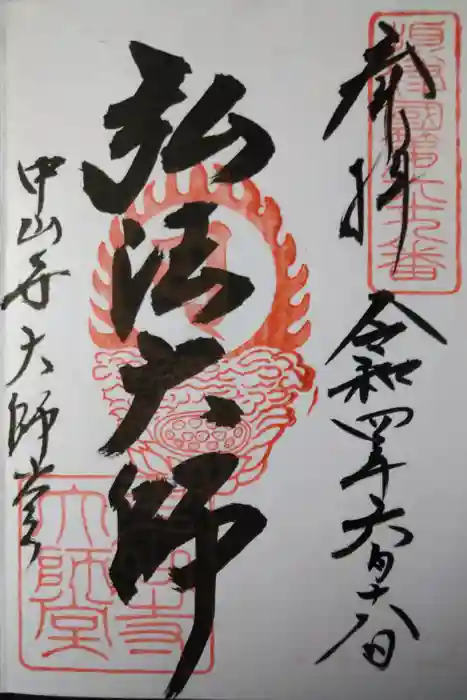 奉拝
令和四年六月十八日
弘法大師
中山寺大師堂
中山寺大師堂